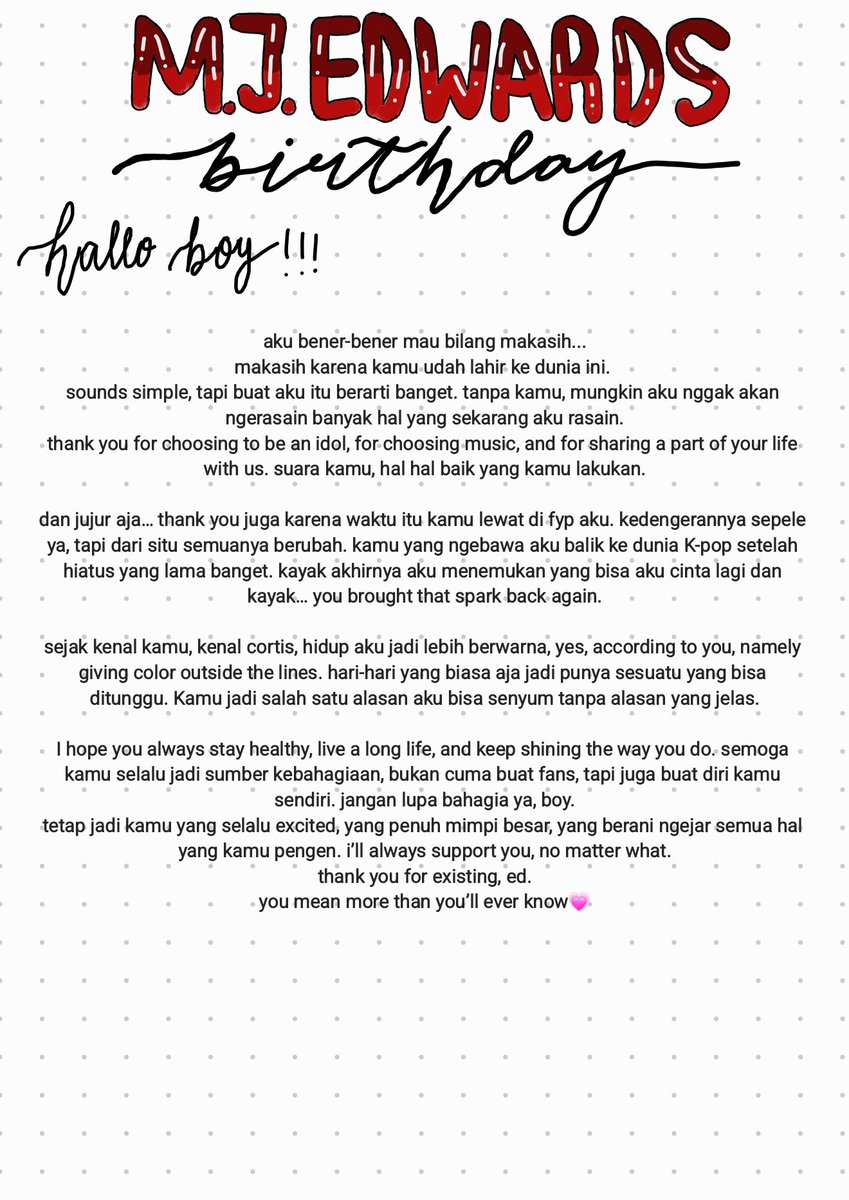 M.J. EDWARDS
birthday
hallo boy !!!
aku bener-bener mau bilang makasih...
makasih karena kamu udah lahir ke dunia ini.
sounds simple, tapi buat aku itu berarti banget. tanpa kamu, mungkin aku nggak akan
ngerasain banyak hal yang sekarang aku rasain.
thank you for choosing to be an idol, for choosing music, and for sharing a part of your life
with us. suara kamu, hal hal baik yang kamu lakukan.
dan jujur aja… thank you juga karena waktu itu kamu lewat di fyp aku. kedengerannya sepele
ya, tapi dari situ semuanya berubah. kamu yang ngebawa aku balik ke dunia K-pop setelah
hiatus yang lama banget. kayak akhirnya aku menemukan yang bisa aku cinta lagi dan
kayak… you brought that spark back again.
sejak kenal kamu, kenal cortis, hidup aku jadi lebih berwarna, yes, according to you, namely
giving color outside the lines. hari-hari yang biasa aja jadi punya sesuatu yang bisa
ditunggu. Kamu jadi salah satu alasan aku bisa senyum tanpa alasan yang jelas.
I hope you always stay healthy, live a long life, and keep shining the way you do. semoga
kamu selalu jadi sumber kebahagiaan, bukan cuma buat fans, tapi juga buat diri kamu
sendiri. jangan lupa bahagia ya, boy.
tetap jadi kamu yang selalu excited, yang penuh mimpi besar, yang berani ngejar semua hal
yang kamu pengen. i’ll always support you, no matter what.
thank you for existing, ed.
you mean more than you’ll ever know💗